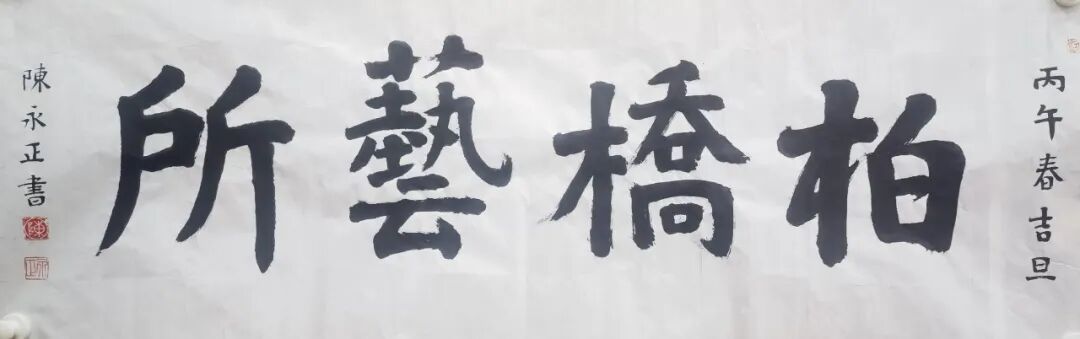 丙午春吉旦
柏橋藝所
陳永正書
陳